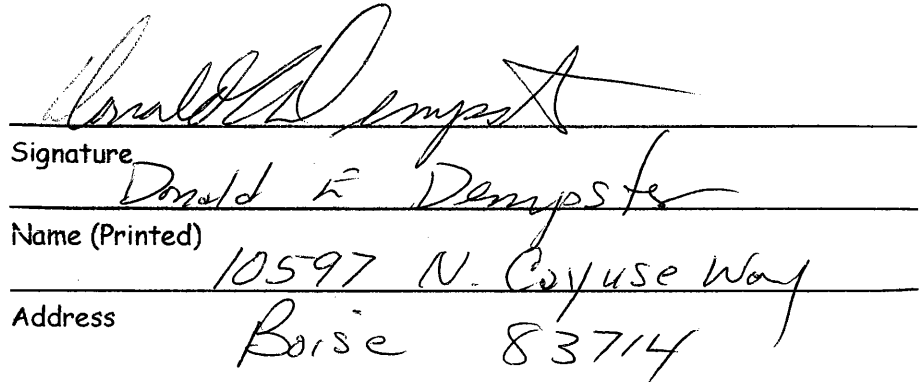 Donald E Dempster
Signature
Donald E Dempster
Name (Printed)
10597 N. Cayuse Way
Address
Boise 83714